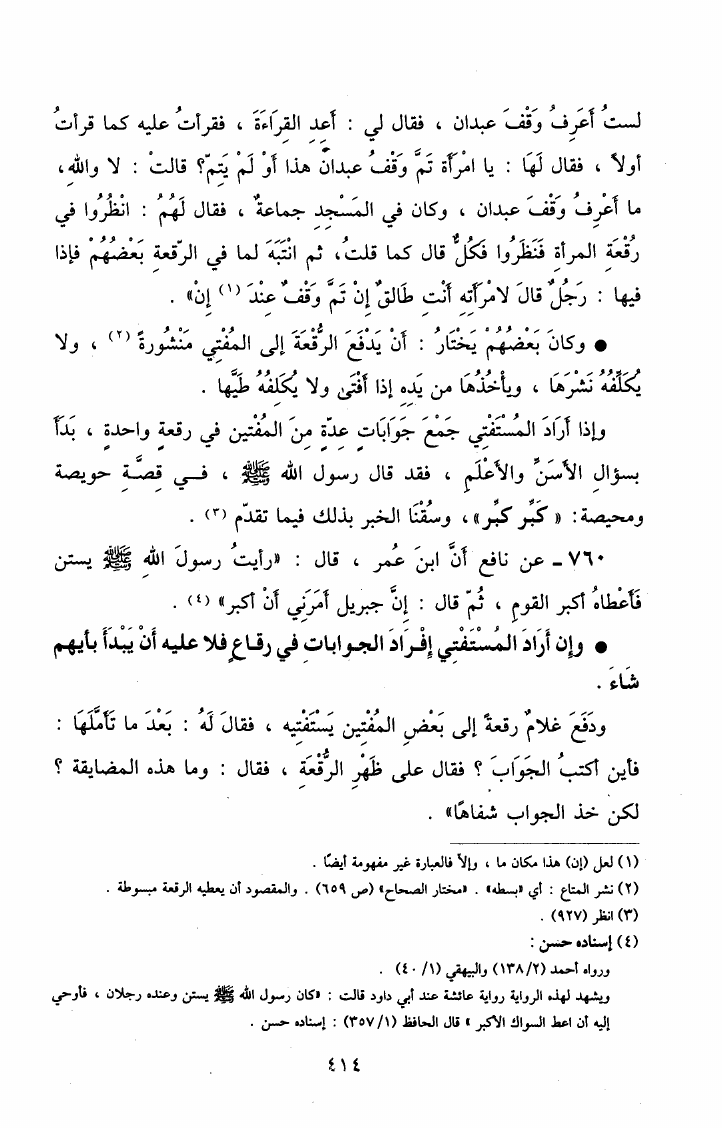 لستُ أَعَرِفُ وَقْفَ عبدان ، فقال لي : أَعِدِ القِرَاءَةَ ، فقرأتُ عليه كما قرأتُ
أولاً ، فقال لَهَا : يا امْرَأة تَمَّ وَقْفُ عبدانَ هذا أوْ لَمْ يَتِمّ؟ قالتْ : لا واللهِ،
ما أَعْرِفُ وَقْفَ عبدان ، وكان في المَسْجِدِ جماعةٌ ، فقال لَهُمُ : انْظُرُوا في
رُقْعَةِ المرأة فَنَظَرُوا فَكُلٌّ قال كما قلتُ، ثم انْتَبَهَ لما في الرّقعةِ بَعْضُهُمْ فإذا
فيها : رَجُلٌ قالَ لامْرَأتِه أنْتِ طَالقٌ إنْ تَمَّ وَقْفٌ عِنْدَ (١) إنْ» .
● وكانَ بَعْضُهُمْ يَخْتَارُ : أَنْ يَدْفَعَ الرُّقْعَةَ إلى المُفْتِي مَنْشُورةً (٢) ، ولا
يُكَلِّفُهُ نَشْرَهَا ، ويأْخُذُهَا من يَدِه إذا أَفْتَىٰ ولا يُكَلفُهُ طَيَّها .
وإذا أَرَادَ المُسْتَفْتِي جَمْعَ جَوَابَاتٍ عِدّةٍ مِنَ المُفْتين في رقعةٍ واحدةٍ ، بَدَأَ
بسؤالِ الأسَنِّ والأَعْلَمِ ، فقد قال رسول الله ﷺ ، فــي قِصَّةِ حويصة
ومحيصة: «كَبِّر كَبِّر»، وسُقْنَا الخبر بذلك فيما تقدّم (٣) .
٧٦٠ ـ عن نافع أنَّ ابنَ عُمر ، قال : «رأيتُ رسولَ اللهِ ﷺ يستن
فَأَعْطاهُ أكبر القوم ، ثُمّ قال : إنَّ جبريل أمَرَنِي أنْ أكبر» (٤) .
● وإن أَرَادَ المُسْتَفْتِي إفْـرَادَ الجـوابات في رقـاعٍ فلا عليه أنْ يَبْدَأَ بأيهم
شَاءَ .
ودَفَعَ غلامٌ رقعةً إلى بَعْضِ المُفْتين يَسْتَفْتِيه ، فقالَ لَهُ : بَعْدَ ما تَأَمَّلَهَا :
فأين أكتبُ الجَوَابَ ؟ فقال على ظَهْرِ الرُّقْعَةِ ، فقال : وما هذه المضايقة ؟
لكن خذ الجواب شفاهًا» .
(١) لعل (إن) هذا مكان ما ، وإلاّ فالعبارة غير مفهومة أيضًا .
(٢) نشر المتاع : أي «بسطه» . «مختار الصحاح» (ص ٦٥٩) . والمقصود أن يعطيه الرقعة مبسوطة .
(٣) انظر (٩٢٧) .
(٤) إسناده حسن :
ورواه أحمد (١٣٨/٢) والبيهقي (٤٠/١) .
ويشهد لهذه الرواية رواية عائشة عند أبي داود قالت : «كان رسول الله ﷺ يستن وعنده رجلان ، فأوحي
إليه أن اعط السواك الأكبر » قال الحافظ (٣٥٧/١) : إسناده حسن .
٤١٤